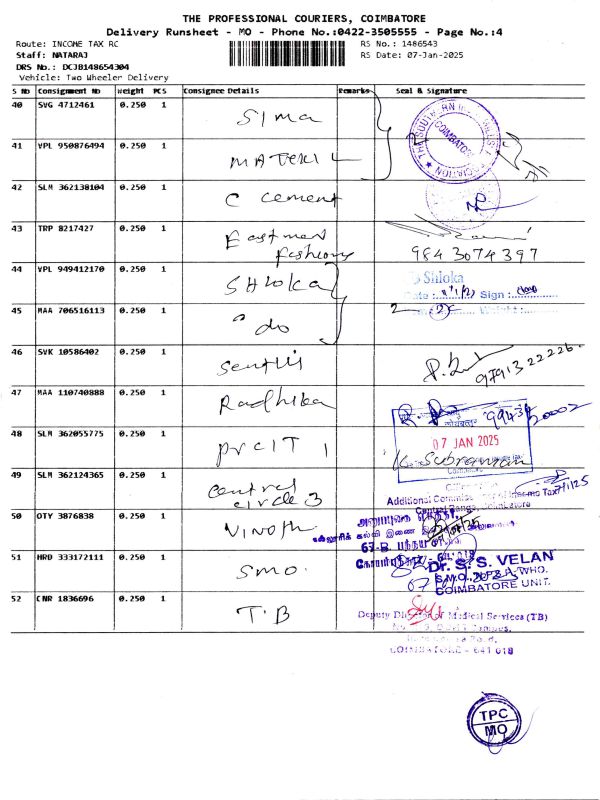 THE PROFESSIONAL COURIERS, COIMBATORE
Delivery Runsheet - MO - Phone No.:0422-3505555 - Page No.:4
Route: INCOME TAX RC
RS No.: 1486543
Staff: NATARAJ
RS Date: 07-Jan-2025
DRS No.: DCJB148654304
Vehicle: Two Wheeler Delivery
S No Consignment No Weight PCS Consignee Details Remarks Seal & Signature
40 SVG 4712461 0.250 1 Sima
41 VPL 950876494 0.250 1
42 SLM 362138104 0.250 1 C cement
43 TRP 8217427 0.250 1 Eastman fashions
9843074397
44 VPL 949412170 0.250 1 Shloka
Shloka
Sign :
45 MAA 706516113 0.250 1 do
46 SVK 10586402 0.250 1 Senthil
9791322226
47 MAA 110740888 0.250 1 Radhika
07 JAN 2025
48 SLM 362055775 0.250 1 PRCIT 1
K. Subramani
49 SLM 362124365 0.250 1 Central circle 3
Additional
Central Range, Coimbatore
50 OTY 3876838 0.250 1 Vinoth
51 HRD 333172111 0.250 1 SMO
Dr. S. S. VELAN
S.M.O., N.P.S.P-WHO.
COIMBATORE UNIT.
52 CNR 1836696 0.250 1 T.B
Deputy Director of Medical Services (TB)
COIMBATORE - 641 018
TPC
MO